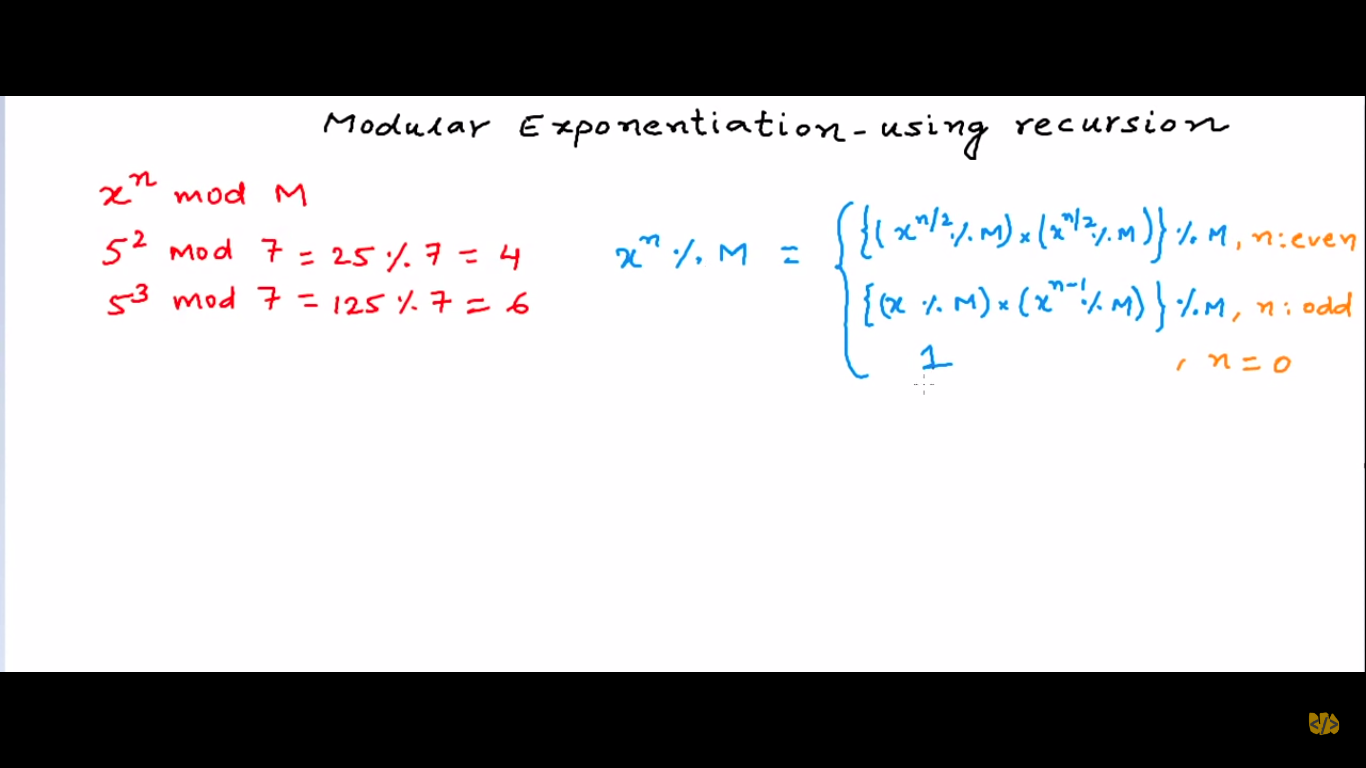 Modular Exponentiation - using recursion
xⁿ mod M
5² mod 7 = 25 % 7 = 4
5³ mod 7 = 125 % 7 = 6
xⁿ % M =
{(x^n/2 % M) × (x^n/2 % M)} % M, n: even
{(x % M) × (x^n-1 % M)} % M, n: odd
1 , n = 0